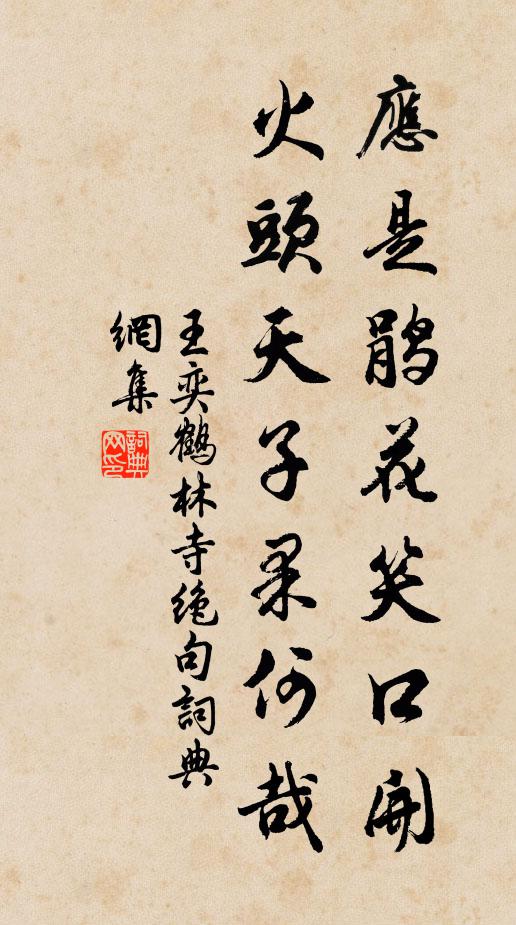 應是鵑花笑口開
火頭天子果何哉
王奕鶴林寺絶句詞典
網集
詞典
网印